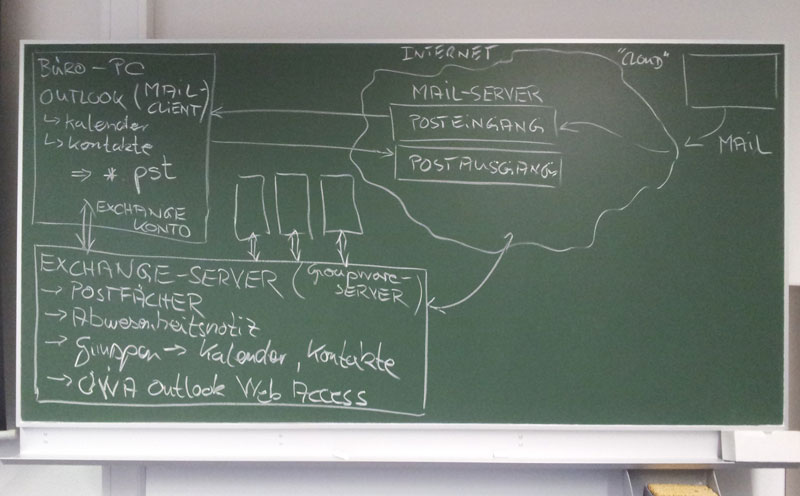 BÜRO-PC
OUTLOOK (MAIL-
CLIENT)
↳ Kalender
↳ Kontakte
⇒ *.pst
EXCHANGE
KONTO
INTERNET
"CLOUD"
MAIL-SERVER
POSTEINGANG
POSTAUSGANG
MAIL
EXCHANGE-SERVER (Groupware-
SERVER)
→ POSTFÄCHER
→ Abwesenheitsnotiz
→ Gruppen → Kalender, Kontakte
→ OWA Outlook Web Access